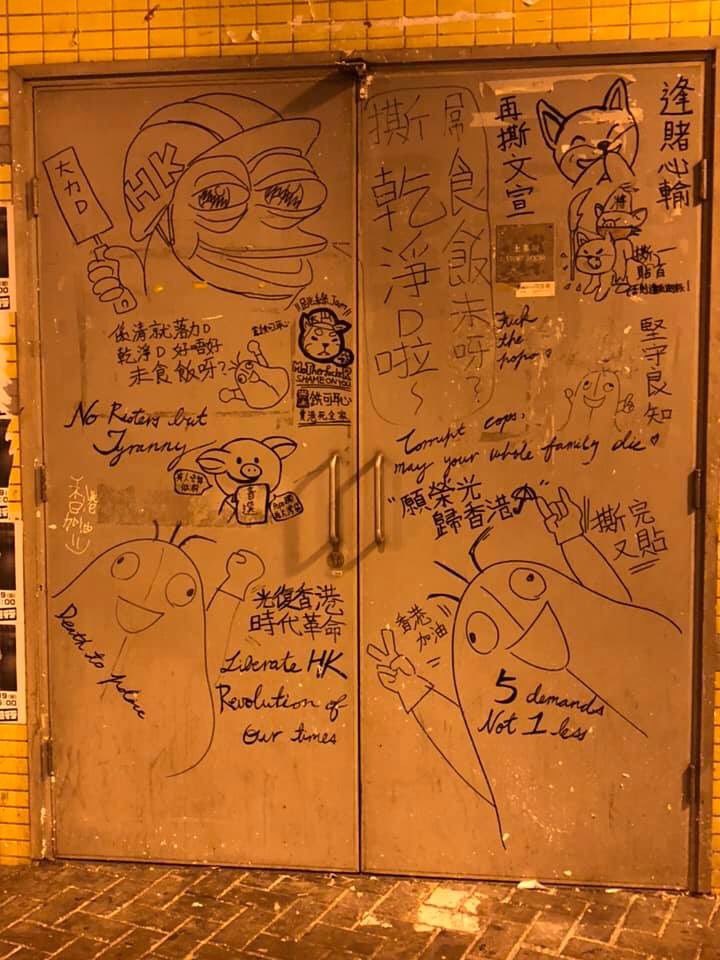 HK
大力D
係清就落力D
乾淨D 好唔好
未食飯呀?
SHAME ON YOU
賣港死全家
No Rioters but
Tyranny
Death to police
光復香港
時代革命
Liberate HK
Revolution of
Our times
逢賭心輸
再撕文宣
屌食飯未呀?
撕乾淨D啦~
Fuck
the
popo
堅守良知
Corrupt cops,
may your whole family die
"願榮光
歸香港"
撕完
又貼
香港
加油
5 demands
Not 1 less